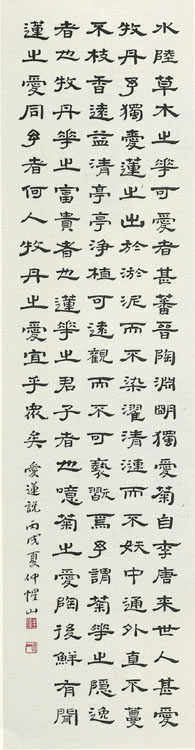 水陸草木之華可愛者甚蕃晉陶淵明獨愛菊自李唐来世人甚愛
牧丹予獨愛蓮之出於淤泥而不染濯清漣而不妖中通外直不蔓
不枝香遠益清亭亭淨植可遠觀而不可褻翫焉予謂菊華之隱逸
者也牧丹華之富貴者也蓮華之君子者也噫菊之愛陶後鮮有聞
蓮之愛同予者何人牧丹之愛宜乎衆矣 愛蓮說 丙戌夏仲惺山